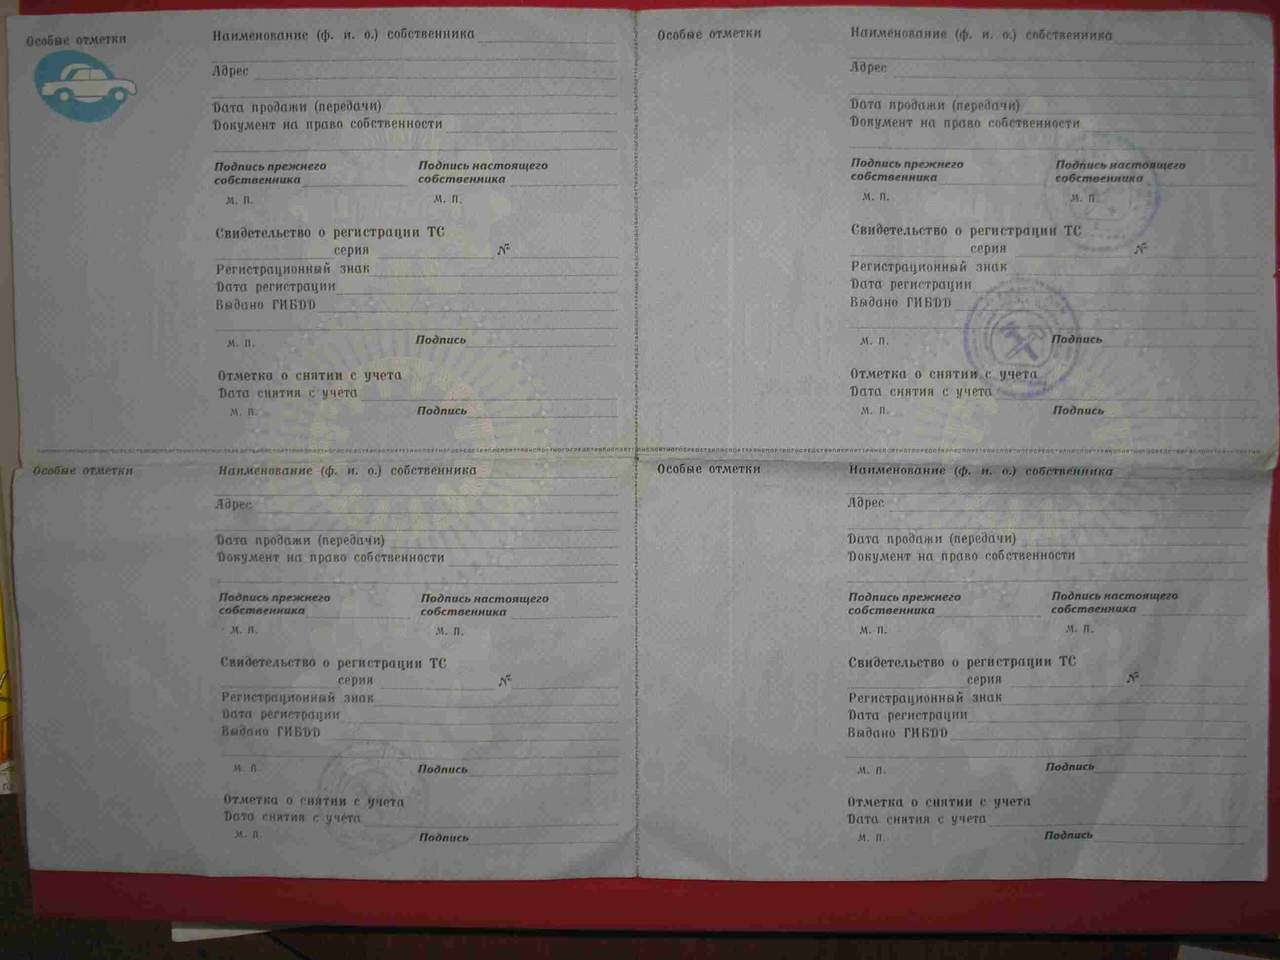 Особые отметки
Наименование (ф. и. о.) собственника
Адрес
Дата продажи (передачи)
Документ на право собственности
Подпись прежнего собственника
Подпись настоящего собственника
м. п.
м. п.
Свидетельство о регистрации ТС
серия №
Регистрационный знак
Дата регистрации
Выдано ГИБДД
м. п. Подпись
Отметка о снятии с учета
Дата снятия с учета
м. п. Подпись
Особые отметки
Наименование (ф. и. о.) собственника
Адрес
Дата продажи (передачи)
Документ на право собственности
Подпись прежнего собственника
Подпись настоящего собственника
м. п.
м. п.
Свидетельство о регистрации ТС
серия №
Регистрационный знак
Дата регистрации
Выдано ГИБДД
м. п. Подпись
Отметка о снятии с учета
Дата снятия с учета
м. п. Подпись
Особые отметки
Наименование (ф. и. о.) собственника
Адрес
Дата продажи (передачи)
Документ на право собственности
Подпись прежнего собственника
Подпись настоящего собственника
м. п.
м. п.
Свидетельство о регистрации ТС
серия №
Регистрационный знак
Дата регистрации
Выдано ГИБДД
м. п. Подпись
Отметка о снятии с учета
Дата снятия с учета
м. п. Подпись
Особые отметки
Наименование (ф. и. о.) собственника
Адрес
Дата продажи (передачи)
Документ на право собственности
Подпись прежнего собственника
Подпись настоящего собственника
м. п.
м. п.
Свидетельство о регистрации ТС
серия №
Регистрационный знак
Дата регистрации
Выдано ГИБДД
м. п. Подпись
Отметка о снятии с учета
Дата снятия с учета
м. п. Подпись